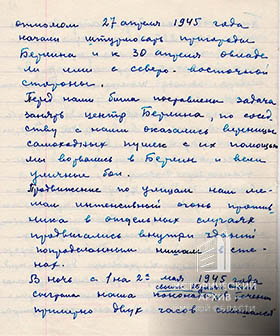 27 апреля 1945 года
начали штурмовать пригороды
Берлина и к 30 апреля овладе
ли ими с северо-восточной
стороны.
Перед нами была поставлена задача
занять центр Берлина, по сосед
ству с нами оказались
самоходных пушек с их помощью
ми ворвались в Берлин и вели
уличные бои.
Продвижение по улицам нам ме
шал интенсивный огонь против
ника в отдельных случаях
продвигались внутри зданий
по проделанным нишам в сте
нах.
В ночь с 1 на 2е мая 1945 года
сыграла наша
примерно двух часов
АРХИВ